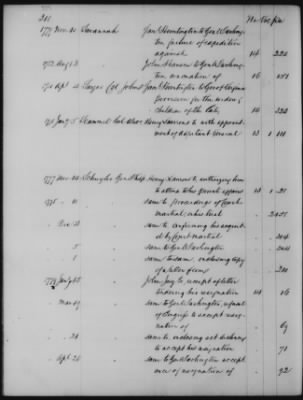 211
No Vol Page
1779 Nov 20 Savannah Jam Huntington to Gen Washington
ton failure of expedition
against 14 222
1782 Aug 13 John Hanson to Gen Washington
ton evacuation of 16 181
1781 Apl Col John Jam Huntington to Gov of Virginia
Provision for the widow &
children of the late 15
Jany 5 Scammel Col Alex Henry Laurens to with appointment
ment of Adjutant General 13 1
1777 Nov Schuyler Gen Philip Henry Laurens to authorizing him
to attend to his private affairs 13 1 21
1778 " 11 same to proceedings of Court
martial which tried 2
Dec 3 same to confirming his acquittal
by Court martial 204
" 5 same to Gen Washington 204
" 8 same to same inclosing copy
of a letter from 210
1779 Jany John Jay to, receipt of letter
tendering his resignation 14 16
Mar 19 same to Gen Washington, refusal
of Congress to accept resignation
nation of 69
" 21 same to inclosing act declining
to accept his resignation 71
Apl 20 same to Gen Washington acceptance
ance of resignation of 92